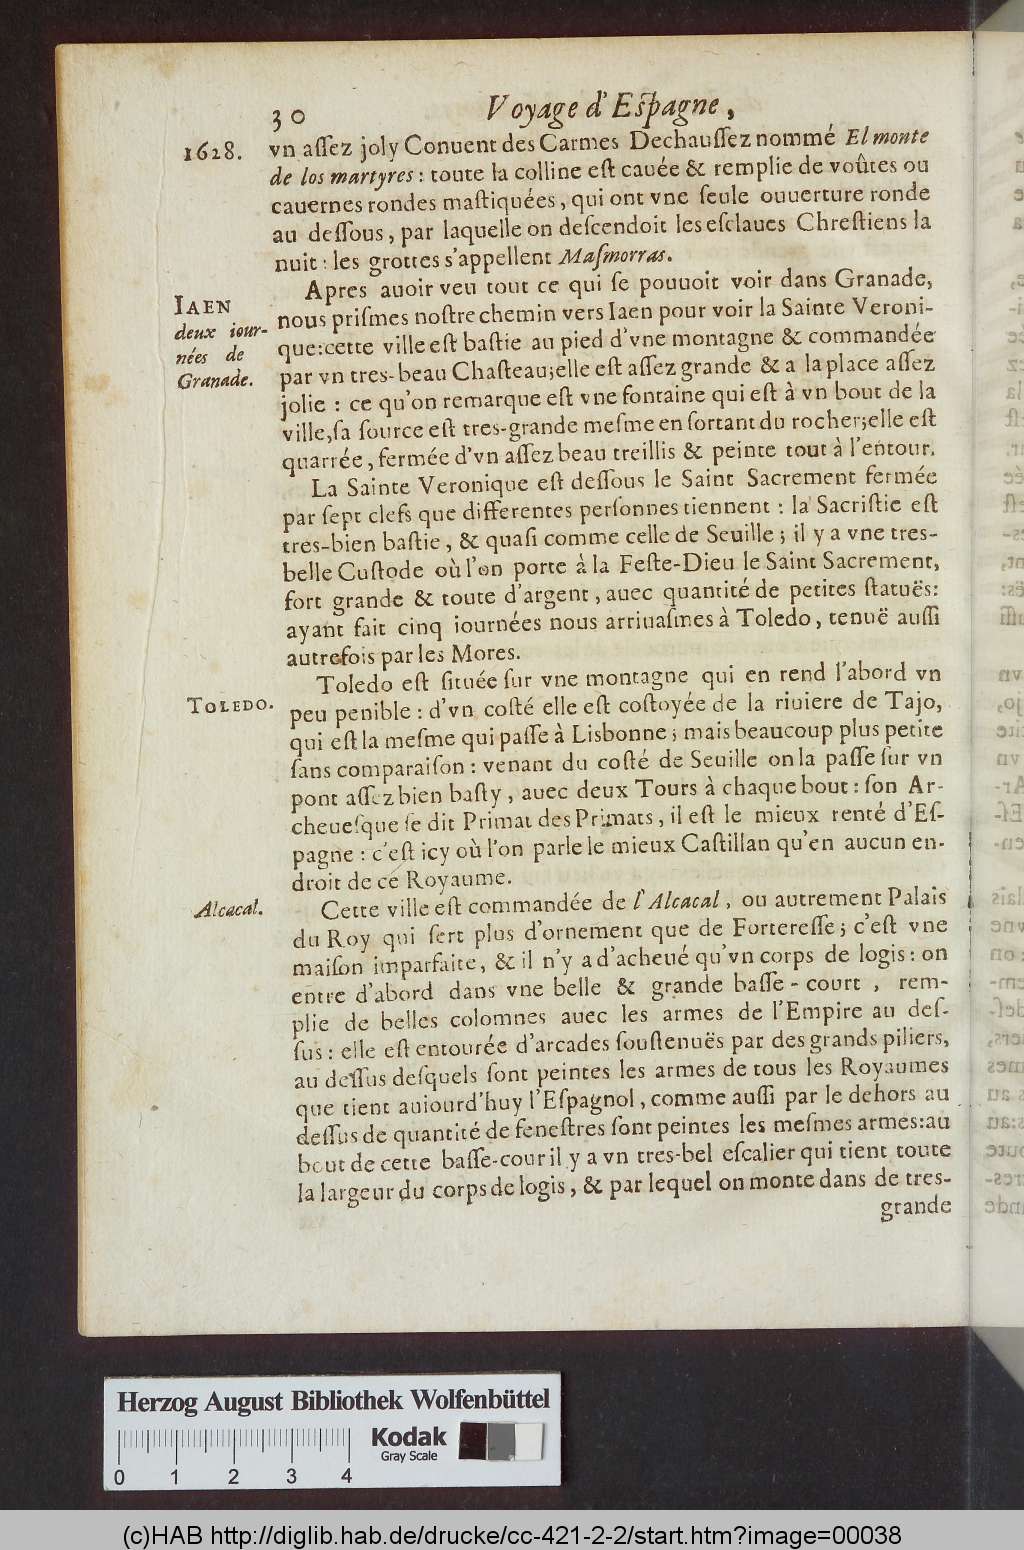 30 Voyage d'Eſpagne,
1628. vn aſſez joly Conuent des Carmes Dechauſſez nommé El monte
de los martyres : toute la colline eſt cauée & remplie de voûtes ou
cauernes rondes maſtiquées, qui ont vne ſeule ouuerture ronde
au deſſous, par laquelle on deſcendoit les eſclaues Chreſtiens la
nuit : les grottes s'appellent Maſmorras.
Apres auoir veu tout ce qui ſe pouuoit voir dans Granade,
IAEN
deux iour-
nées de
Granade.
nous priſmes noſtre chemin vers Iaen pour voir la Sainte Veroni-
que:cette ville eſt baſtie au pied d'vne montagne & commandée
par vn tres-beau Chaſteau;elle eſt aſſez grande & a la place aſſez
jolie : ce qu'on remarque eſt vne fontaine qui eſt à vn bout de la
ville,ſa ſource eſt tres-grande meſme en ſortant du rocher;elle eſt
quarrée, fermée d'vn aſſez beau treillis & peinte tout à l'entour.
La Sainte Veronique eſt deſſous le Saint Sacrement fermée
par ſept clefs que differentes perſonnes tiennent : la Sacriſtie eſt
tres-bien baſtie, & quaſi comme celle de Seuille ; il y a vne tres-
belle Cuſtode où l'on porte à la Feſte-Dieu le Saint Sacrement,
fort grande & toute d'argent, auec quantité de petites ſtatuës:
ayant fait cinq iournées nous arriuaſmes à Toledo, tenuë auſſi
autrefois par les Mores.
Toledo eſt ſituée ſur vne montagne qui en rend l'abord vn
TOLEDO. peu penible : d'vn coſté elle eſt coſtoyée de la riuiere de Tajo,
qui eſt la meſme qui paſſe à Lisbonne ; mais beaucoup plus petite
ſans comparaiſon : venant du coſté de Seuille on la paſſe ſur vn
pont aſſez bien baſty, auec deux Tours à chaque bout : ſon Ar-
cheueſque ſe dit Primat des Primats, il eſt le mieux renté d'Eſ-
pagne : c'eſt icy où l'on parle le mieux Caſtillan qu'en aucun en-
droit de ce Royaume.
Alcacal. Cette ville eſt commandée de l'Alcacal, ou autrement Palais
du Roy qui ſert plus d'ornement que de Fortereſſe ; c'eſt vne
maiſon imparfaite, & il n'y a d'acheué qu'vn corps de logis : on
entre d'abord dans vne belle & grande baſſe-court, rem-
plie de belles colomnes auec les armes de l'Empire au deſ-
ſus : elle eſt entourée d'arcades ſouſtenuës par des grands piliers,
au deſſus deſquels ſont peintes les armes de tous les Royaumes
que tient auiourd'huy l'Eſpagnol, comme auſſi par le dehors au
deſſus de quantité de feneſtres ſont peintes les meſmes armes:au
bout de cette baſſe-cour il y a vn tres-bel eſcalier qui tient toute
la largeur du corps de logis, & par lequel on monte dans de tres-
grande
Herzog August Bibliothek Wolfenbüttel
Kodak
Gray Scale
0 1 2 3 4
(c)HAB http://diglib.hab.de/drucke/cc-421-2-2/start.htm?image=00038